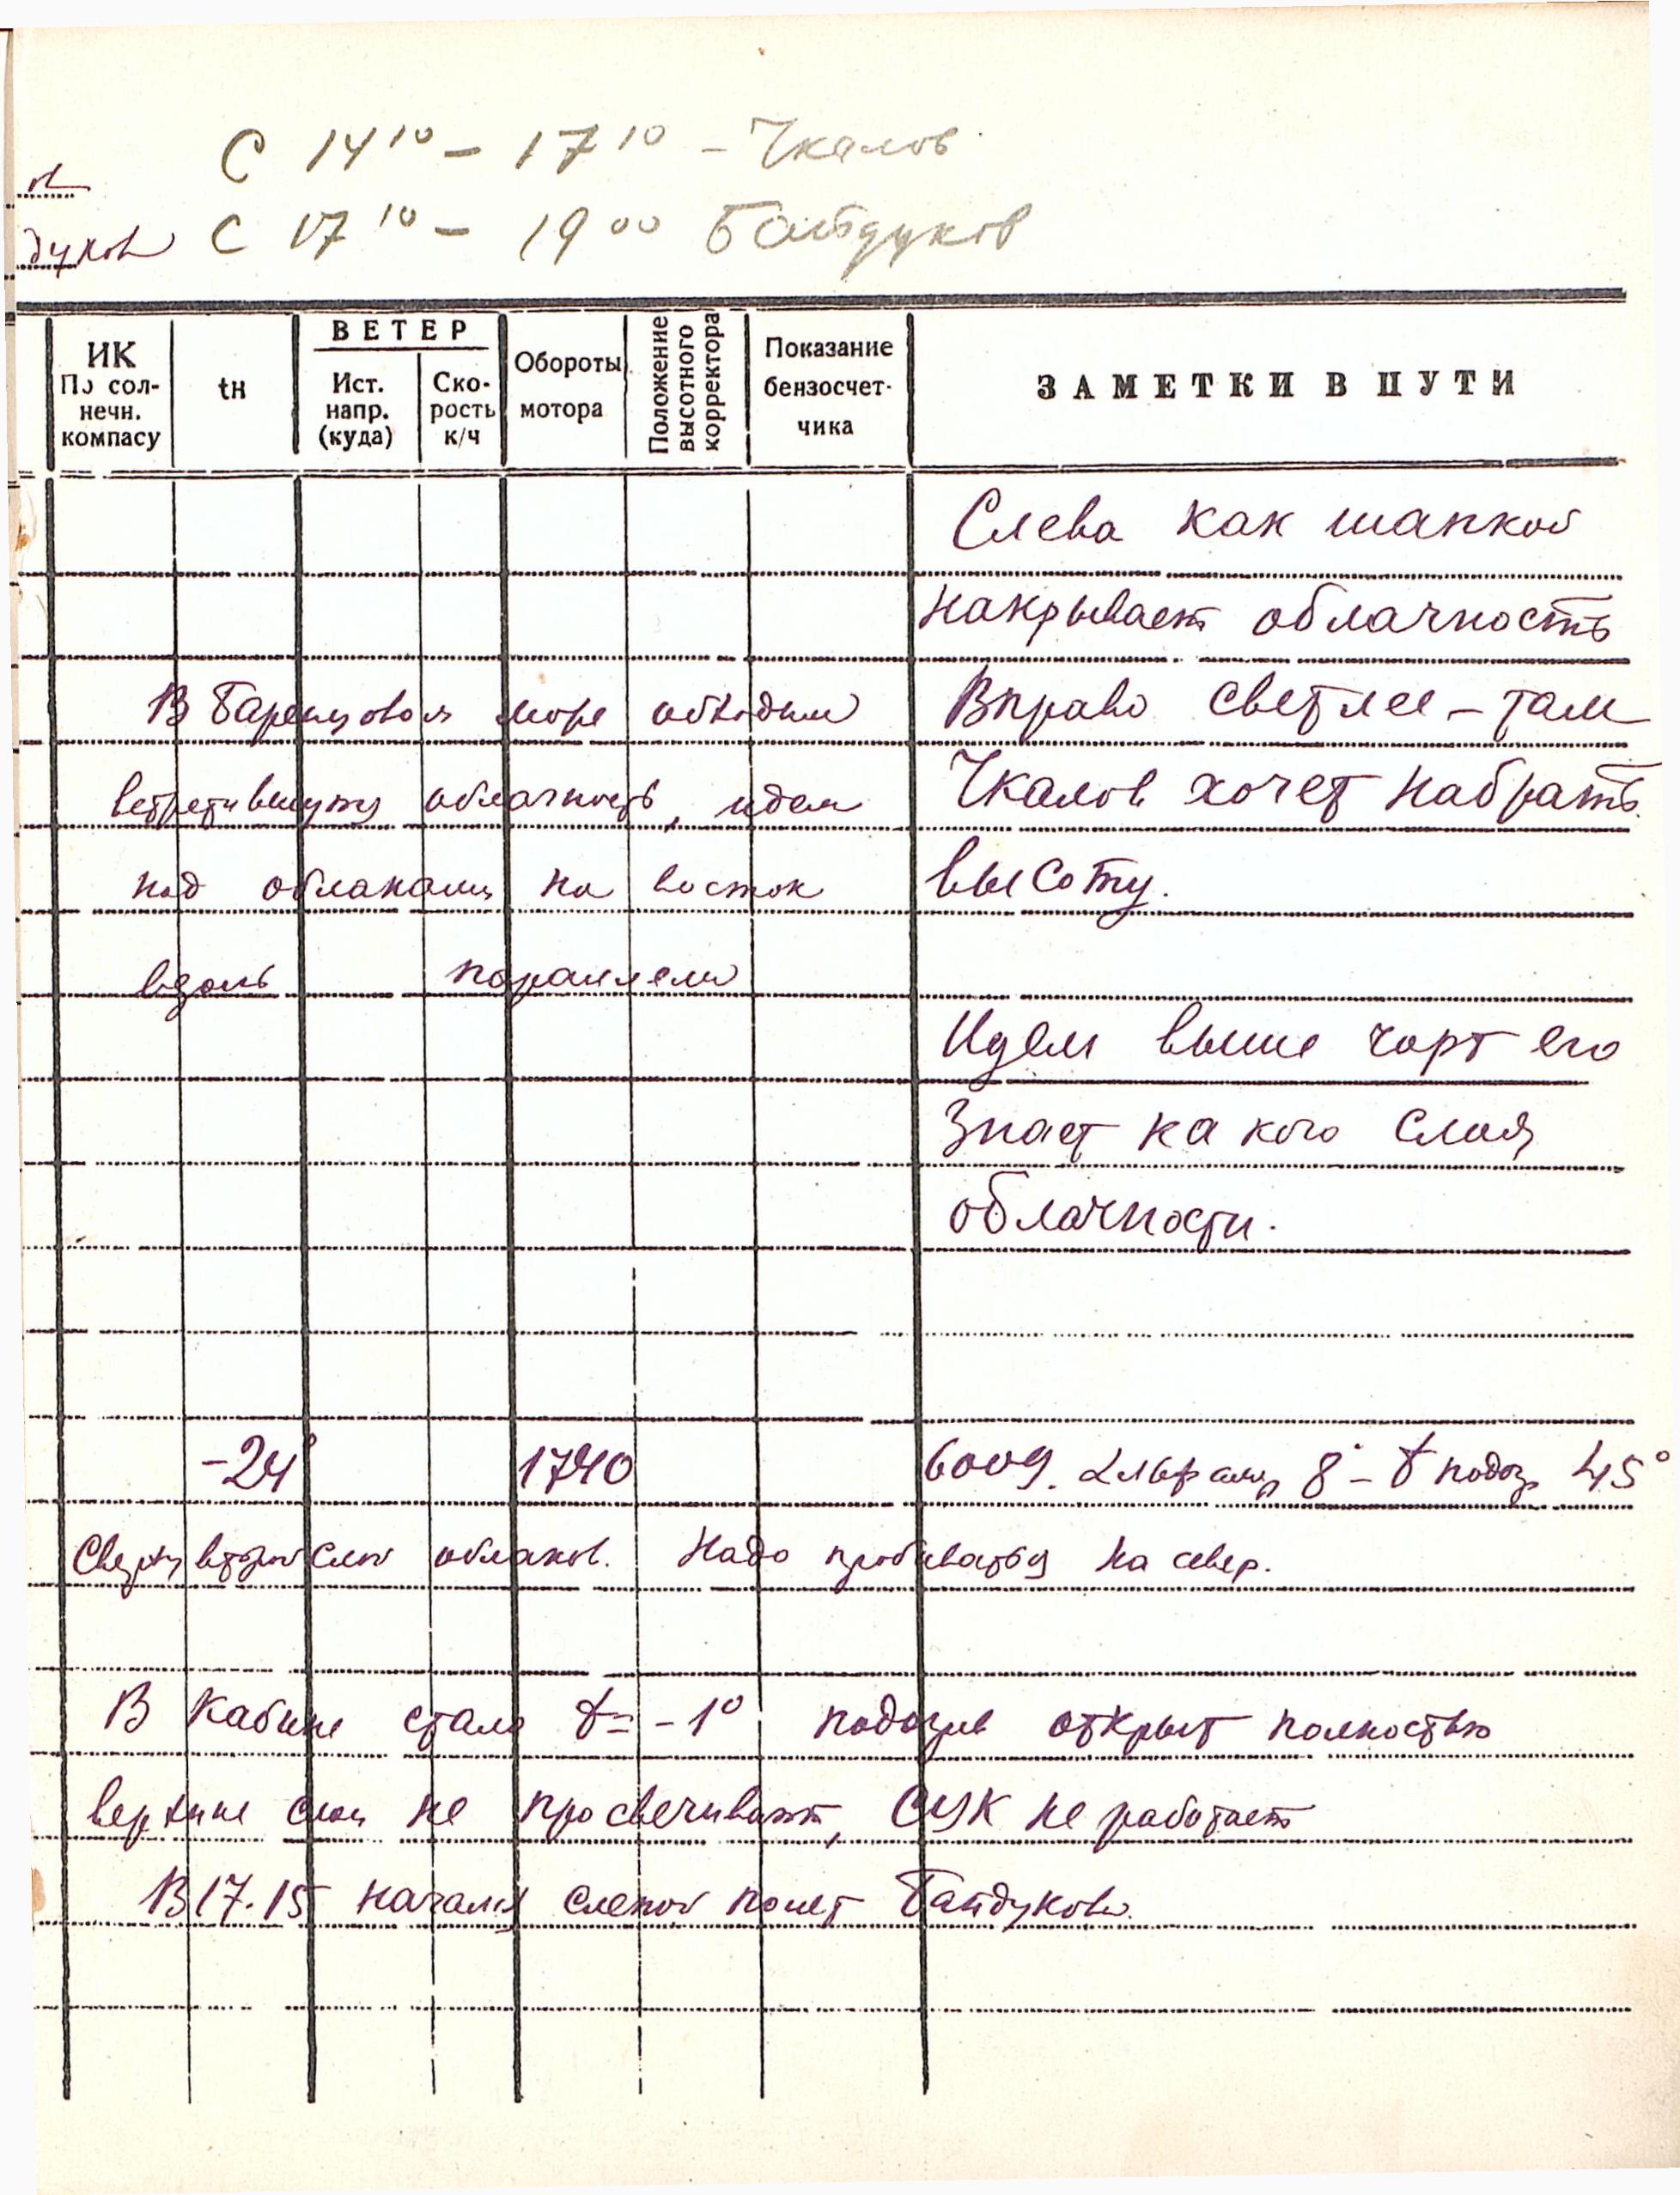 С 14¹⁰ – 17¹⁰ – Чкалов
С 17¹⁰ – 19⁰⁰ Байдуков
дуков
ИК
По сол-
нечн.
компасу
tн
ВЕТЕР
Ист.
напр.
(куда)
Ско-
рость
к/ч
Обороты
мотора
Положение
высотного
корректора
Показание
бензосчет-
чика
ЗАМЕТКИ В ПУТИ
Слева как шапкой
накрывает облачность
В Баренцовом море обходим
Вправо светлее – там
встретившуюся облачность, идем
Чкалов хочет набрать
над облаками на восток
высоту.
вдоль параллели
Идем выше чорт его
знает ка кого слоя
облачности.
-24° 1740 8° – t подог 45°
Сверху второй слой облаков. Надо пробиваться на север.
В кабине стало t = -1° подогрев открыт полностью
верхние слои не просвечивают, СУК не работает
В 17.15 начался слепой полет Байдукова.